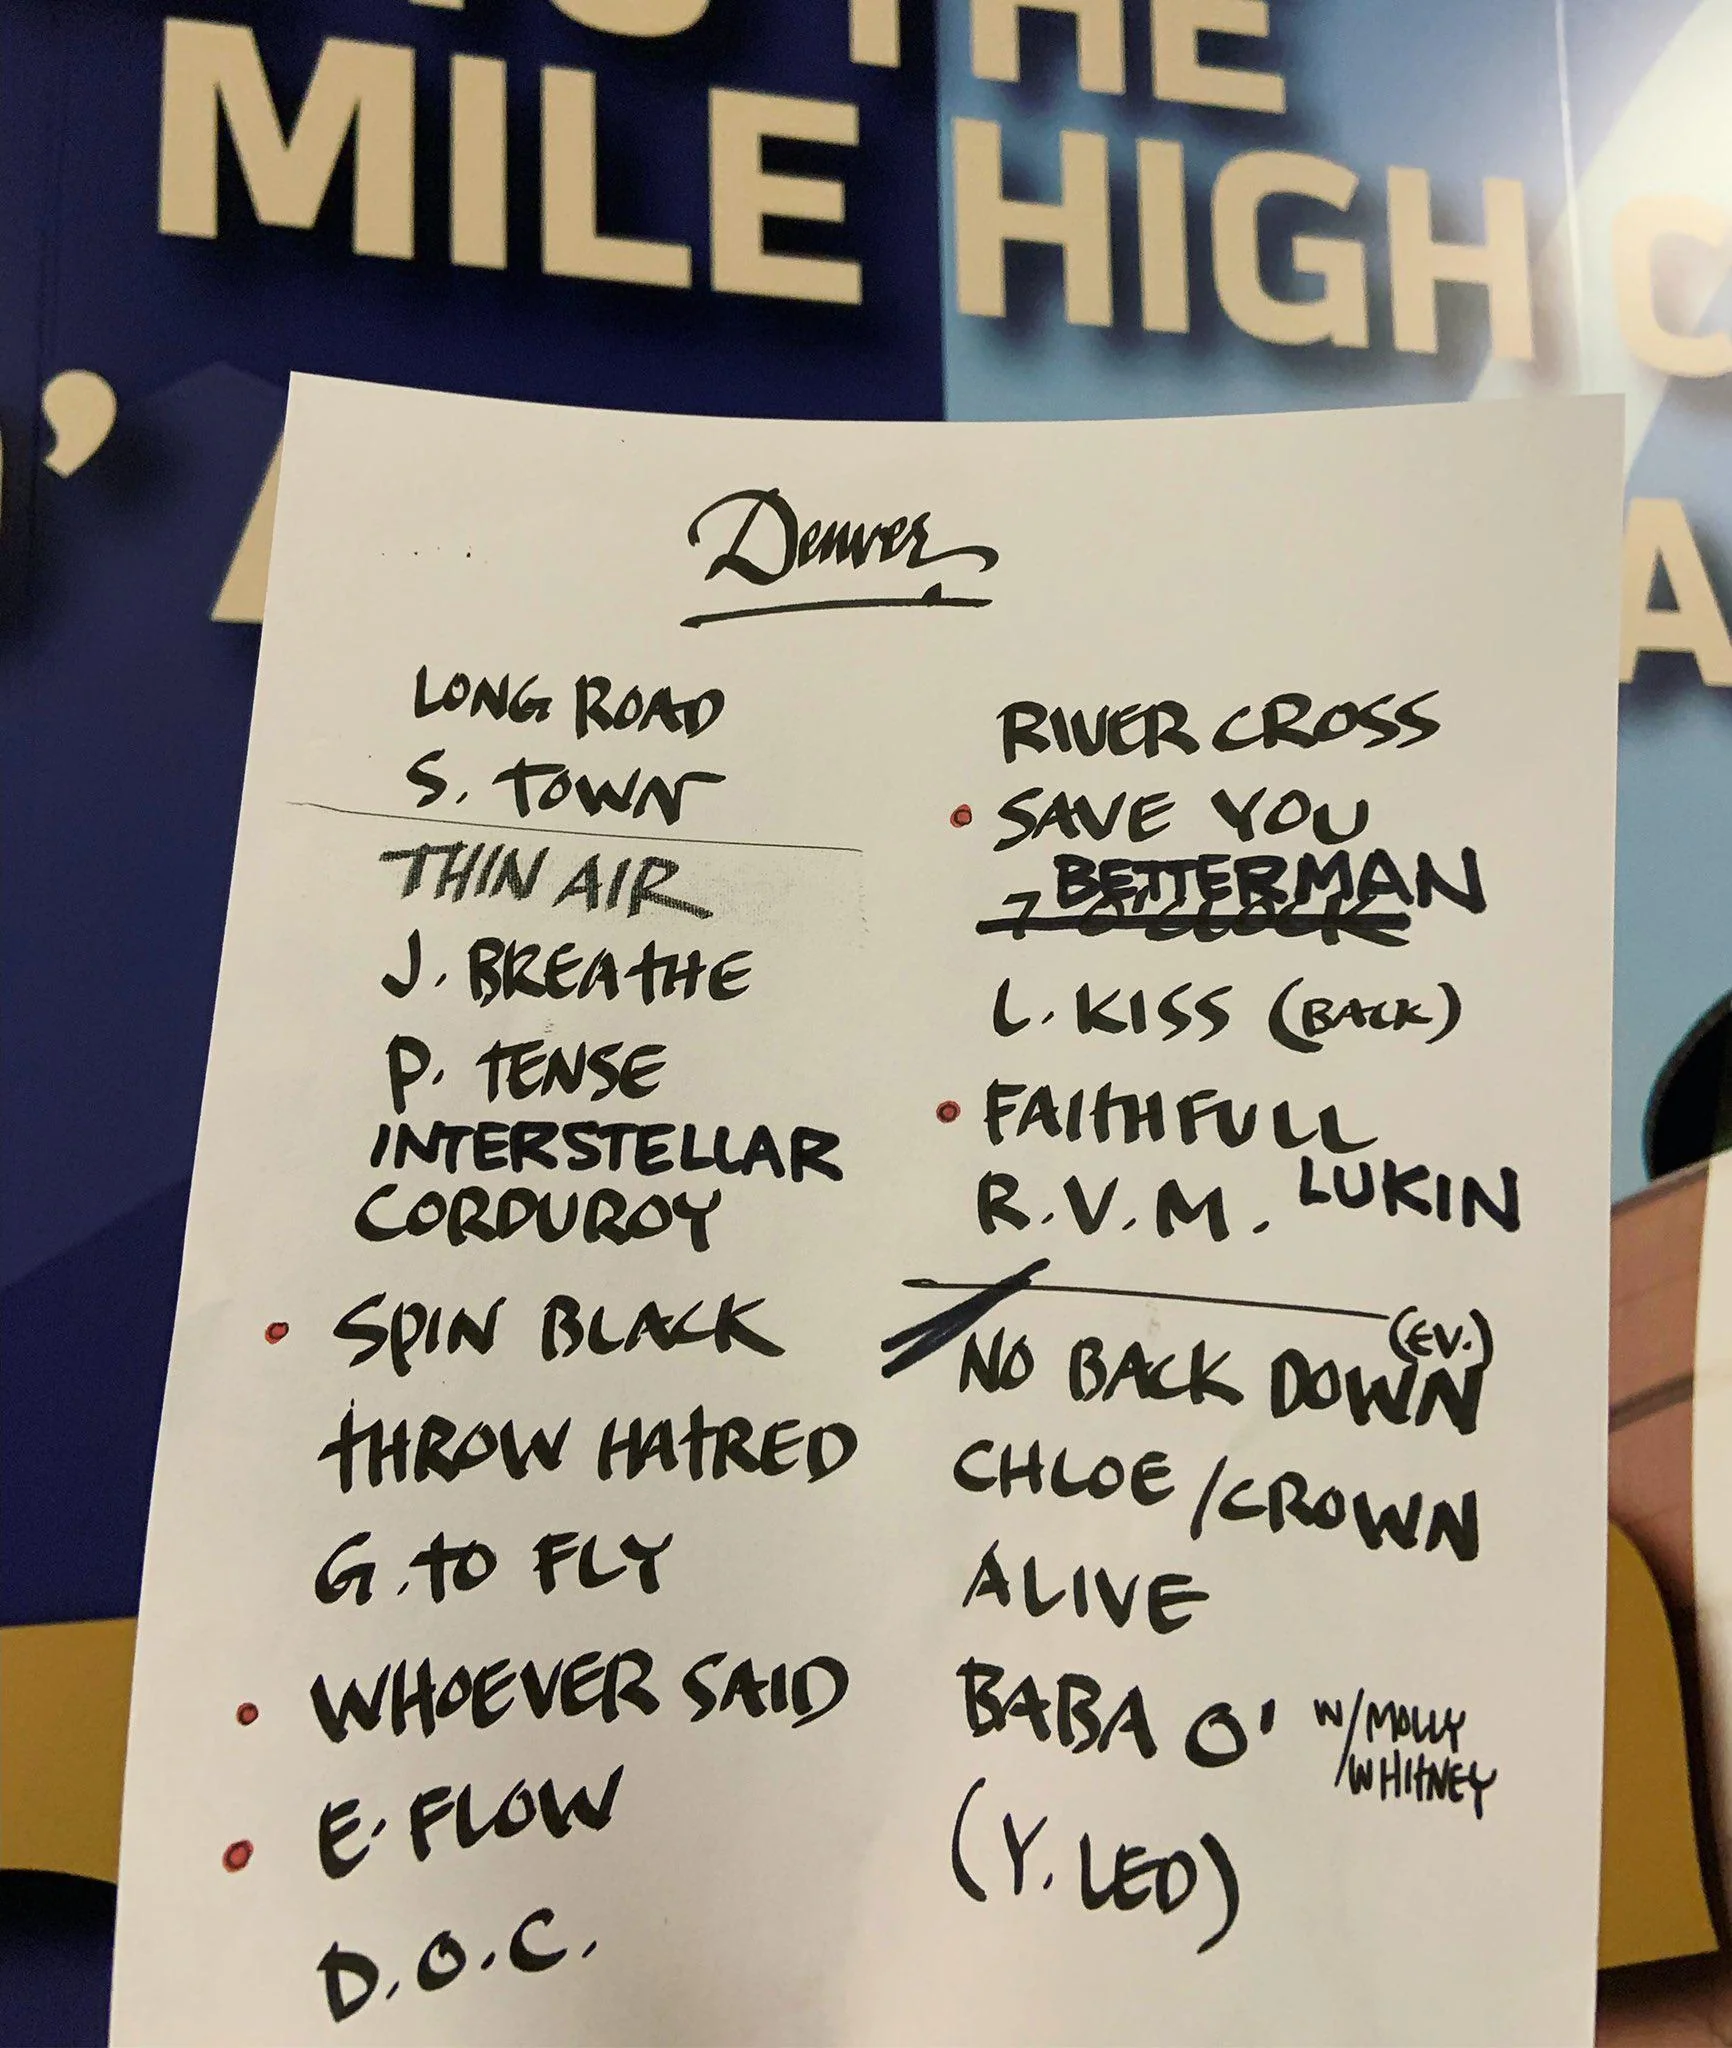 THE
MILE HIGH C
’ A
A
Denver
LONG ROAD
S. TOWN
THIN AIR
J. BREATHE
P. TENSE
INTERSTELLAR
CORDUROY
SPIN BLACK
THROW HATRED
G. TO FLY
WHOEVER SAID
E. FLOW
D.O.C.
RIVER CROSS
SAVE YOU
BETTERMAN
7 O'CLOCK
L. KISS (BACK)
FAITHFULL
R.V.M. LUKIN
(EV.)
NO BACK DOWN
CHLOE/CROWN
ALIVE
BABA O' W/MOLLY
WHITNEY
(Y. LED)